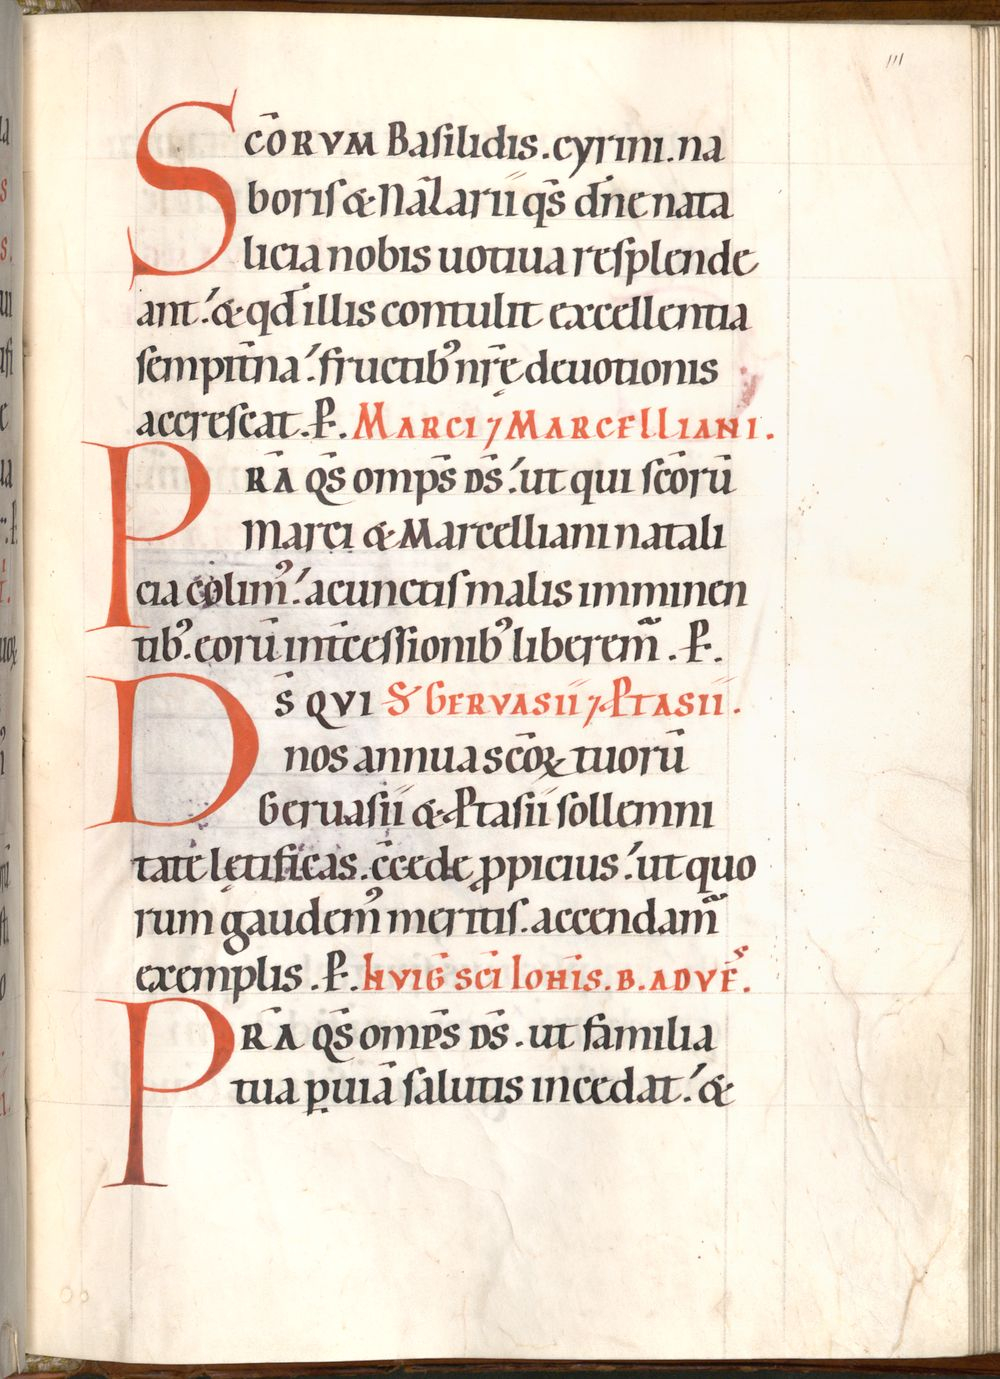 III
SCŌRVM Basilidis. cyrini. na
boris & Nāzarii q̄s dn̄e nata
licia nobis uotiua resplende
ant: & qd̄ illis contulit excellentia
sempit̄na: fructib᾽ nr̄ę deuotionis
accrescat. P̄. MARCI ⁊ MARCELLIANI.
PR̄A Q̄S omp̄s D̄S: ut qui scōrū
Marci & Marcelliani natali
cia colim᾽: a cunctis malis imminen
tib᾽ eorū int̄cessionib᾽ liberem̄. P̄.
D̄S QVI S̄ GERVASII ⁊ P̄TASII.
nos annua scōꝝ tuorū
Geruasii & P̄tasii sollemni
tate lętificas. c̄cede ꝓpicius: ut quo
rum gaudem᾽ meritis. accendam̄
exemplis. P̄. hVIḠ SCI IOHIS. B. ADVE᷒.
PR̄A Q̄S omp̄s D̄S. ut familia
tua p̱ uiā salutis incedat: &